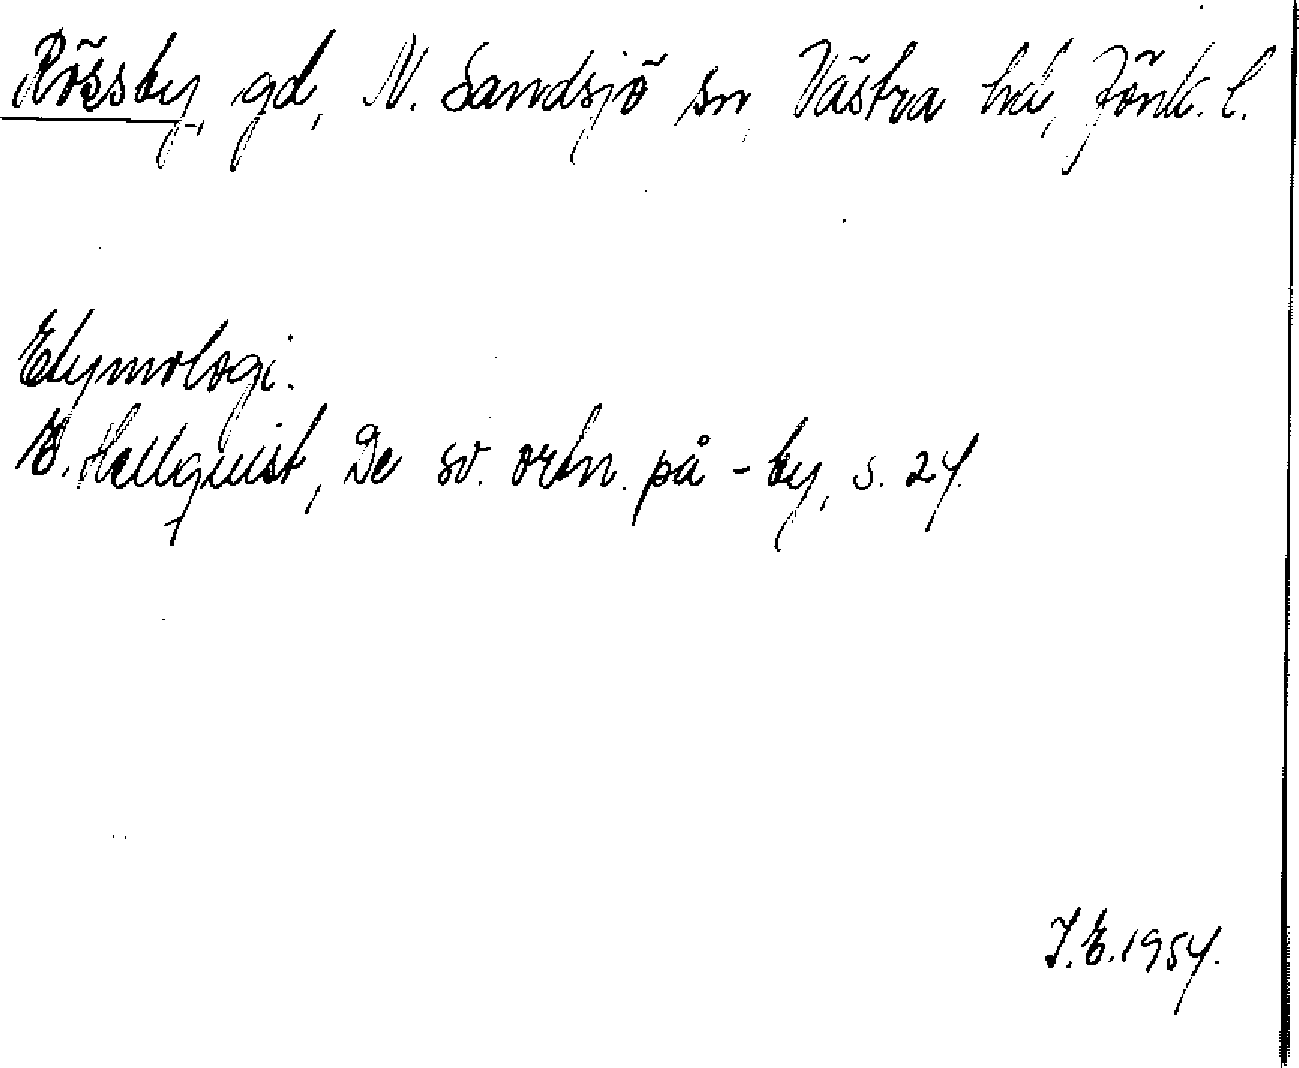 Rössby, gd, N. Sandsjö sn, Västra hd, Jönk. l.
Etymologi.
E. Hellquist, De sv. ortn. på -by, s. 24.
J. E. 1954.